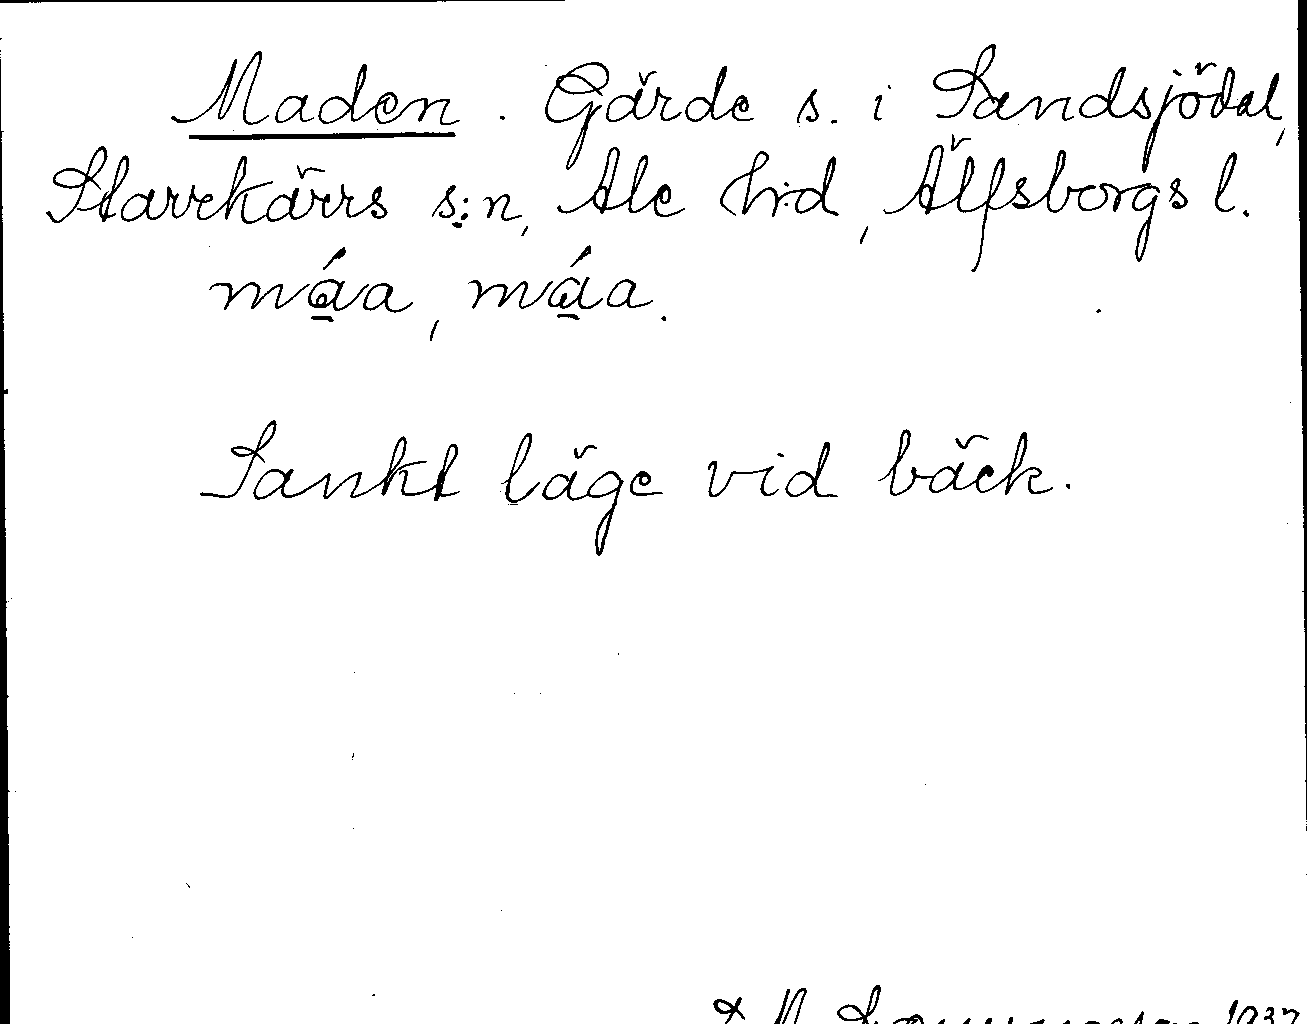 Maden. Gärde s. i Sandsjödal,
Starrkärrs s:n, Ale h:d, Älfsborgs l.
máa, máa.
Sankt läge vid bäck.
1937